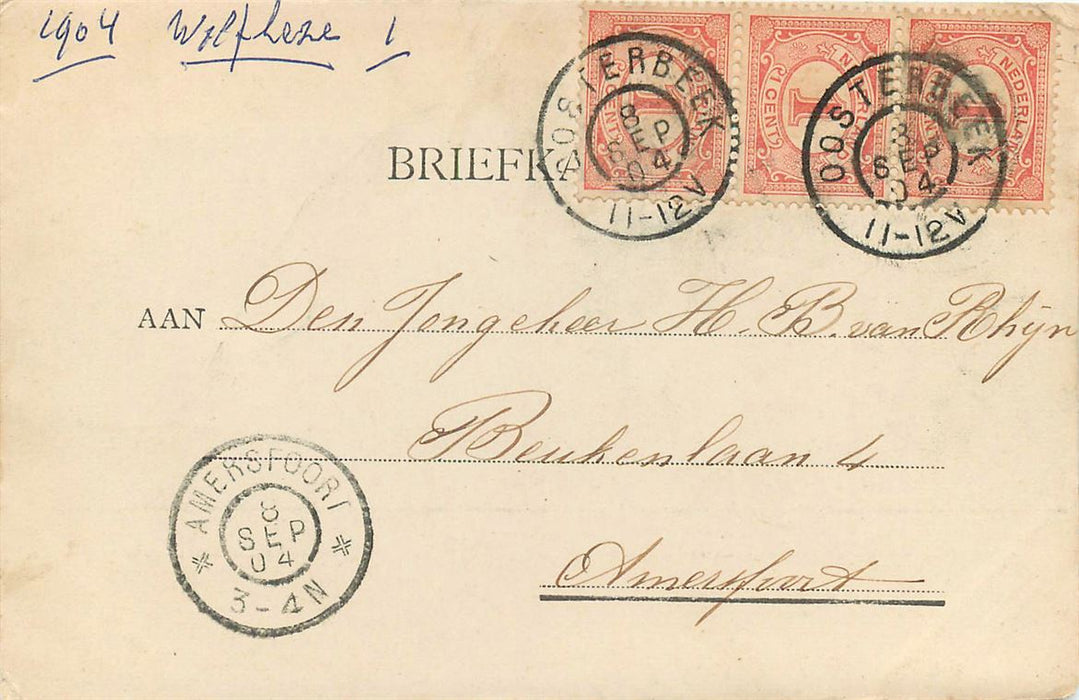 1904 Wolfheze 1
NEDERLAND
1 CENT
1 CENT
1 CENT
OOSTERBEEK
8 SEP 04
11-12V
OOSTERBEEK
8 SEP 04
11-12V
BRIEFKA
AAN Den Jongeheer H. B. van Rhijn
Beukenlaan 4
Amersfoort
AMERSFOORT
8
SEP
04
3-4N